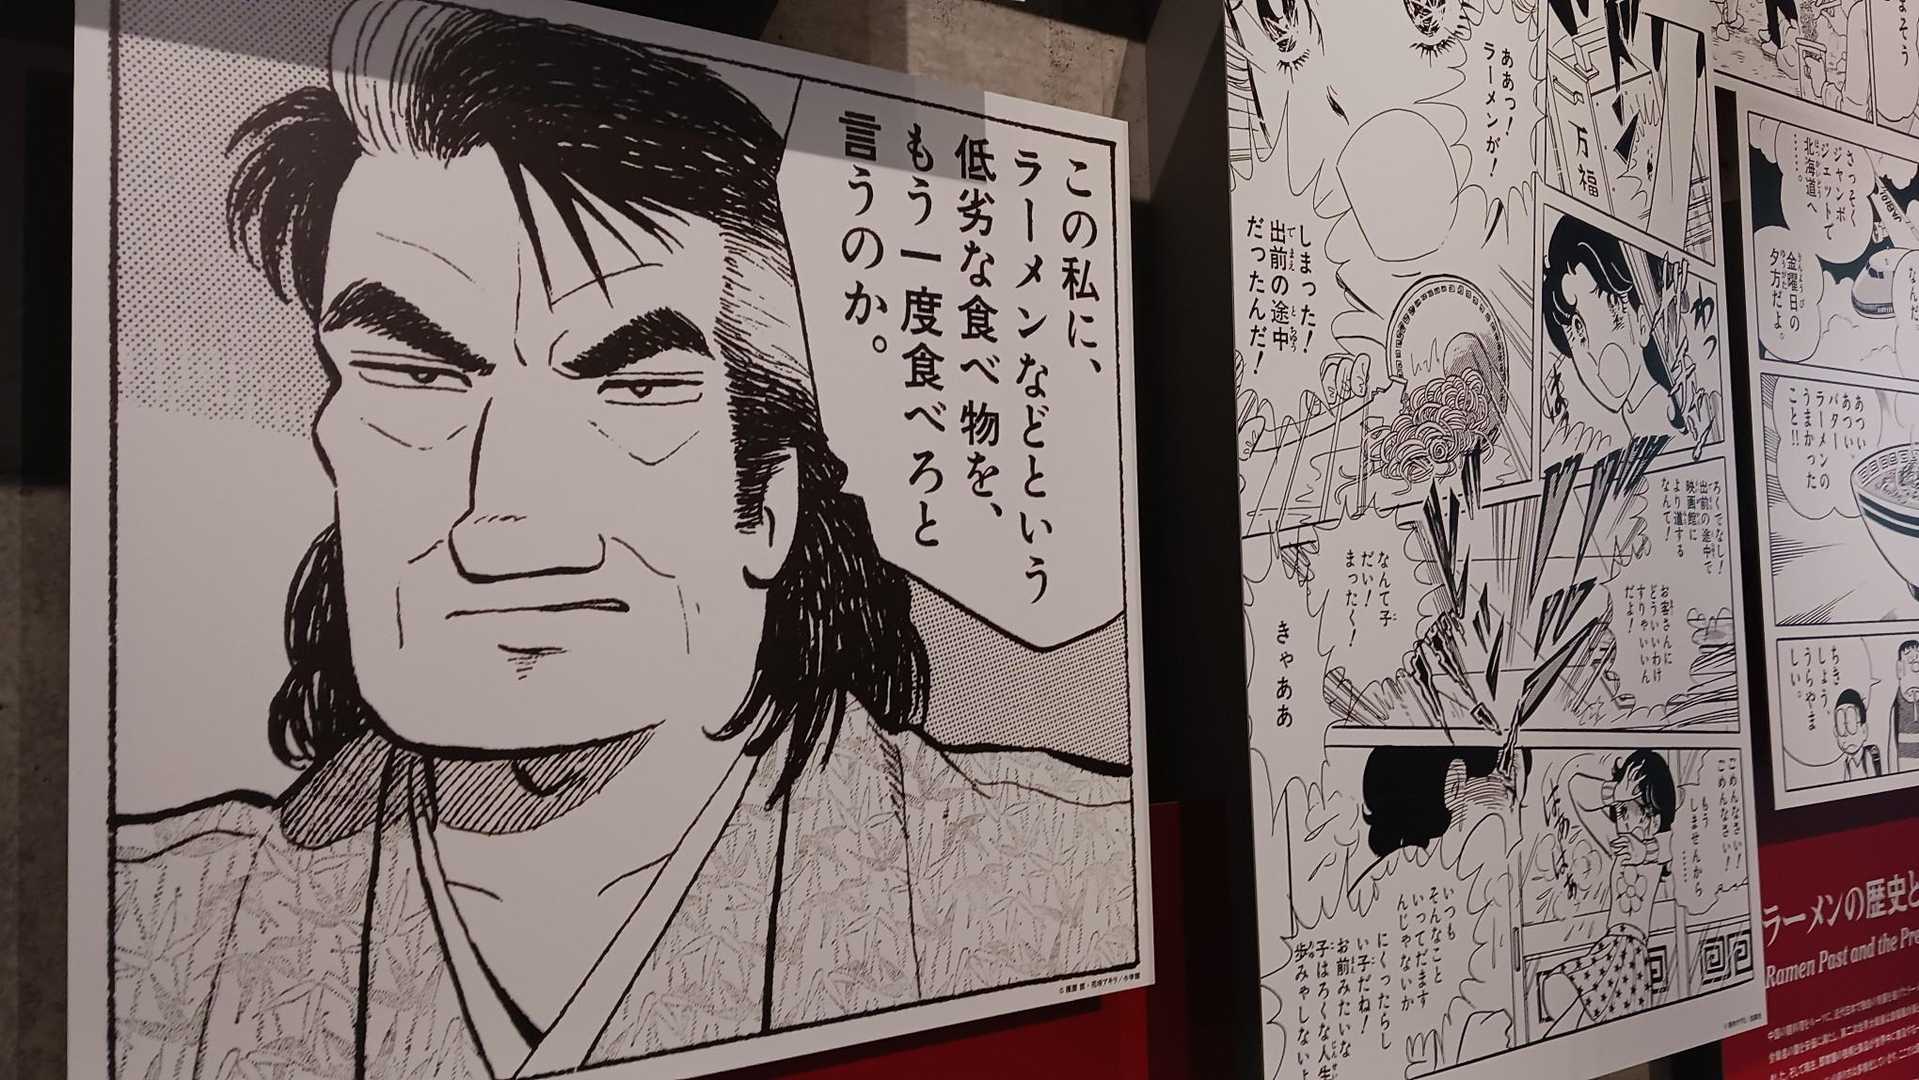 この私に、
ラーメンなどという
低劣な食べ物を、
もう一度食べろと
言うのか。
©雁屋 哲・花咲アキラ/小学館
ああっ!
ラーメンが!
万福
しまった!
出前の途中
だったんだ!
わっ
ろくでなし!
出前の途中で
映画館に
より道する
なんて!
お客さんに
どういいわけ
すりゃいいん
だよ!
なんて子
だい!
まったく!
きゃああ
ごめんなさい!
ごめんなさい!
もう
しませんから
……
いつも
そんなこと
いってだます
んじゃないか
にくったらし
い子だね!
お前みたいな
子はろくな人生
歩みゃしないよ
まそう
さっそく
ジャンボ
ジェットで
北海道へ
……。
金曜日の
夕方だよ。
なんだ
あつい
あつい、
バター
ラーメンの
うまかった
こと!!
ちき
しょう、
うらやま
しい。
ラーメンの歴史と
Ramen Past and the Pre